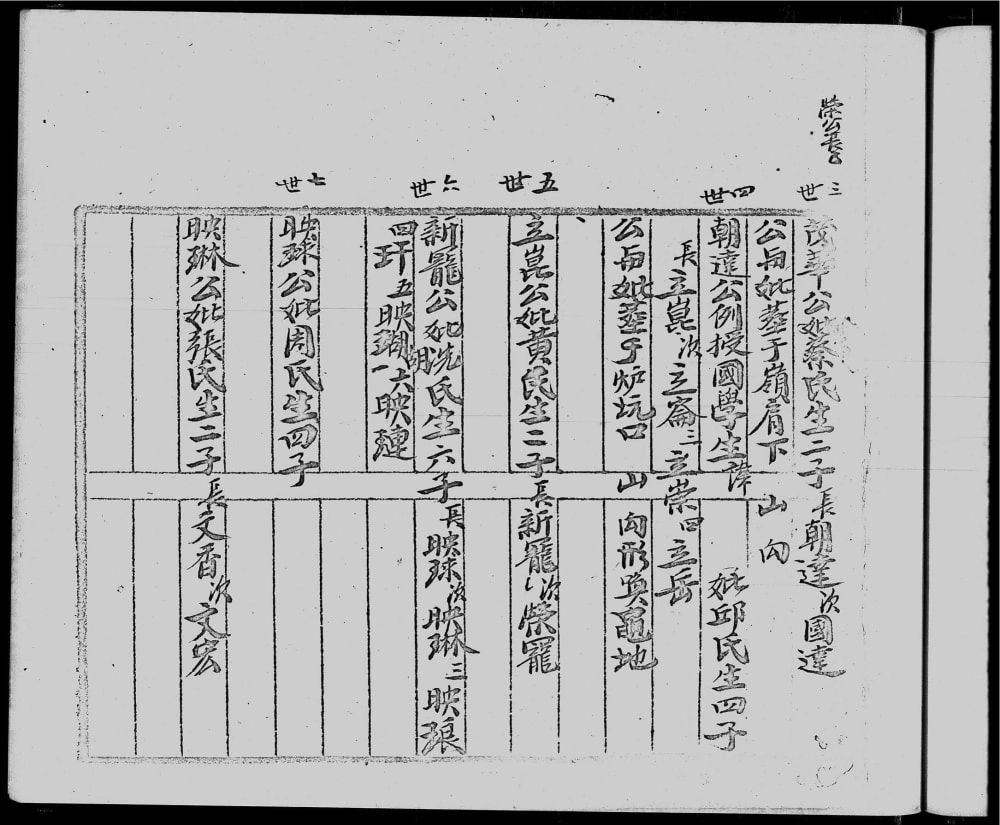 榮公長子
三世
茂華公妣蔡氏生二子長朝達次國達
公與妣葬于嶺肩下 山向
四世
朝達公例授國學生諱 妣邱氏生四子
長立崑次立崙三立崇四立岳
公與妣葬于炉坑口 山向形喚黽地
五世
立崑公妣黃氏生二子長新寵次榮寵
六世
新寵公妣冼氏生六子長映球次映琳三映琅
四玕五映瑚六映璉
七世
映球公妣周氏生四子
映琳公妣張氏生二子長文香次文宏